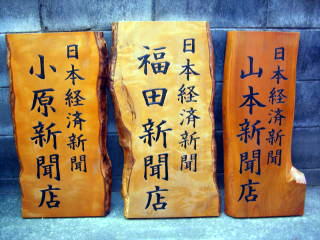 日本経済新聞
小原新聞店
日本経済新聞
福田新聞店
日本経済新聞
山本新聞店